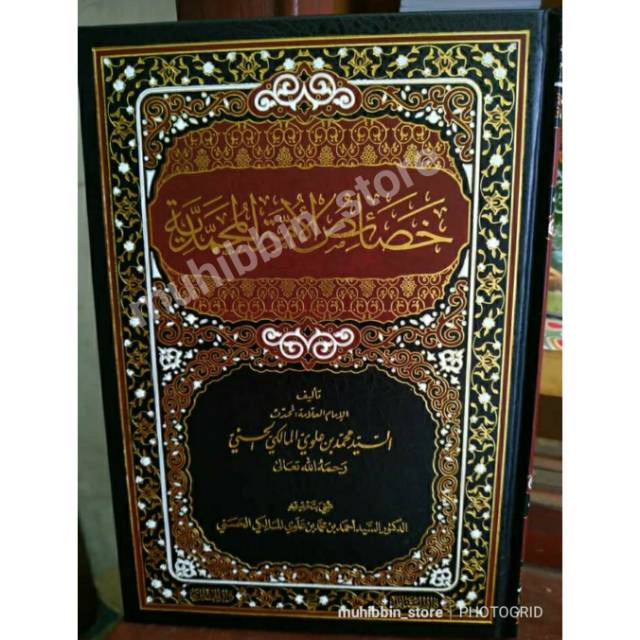 خصائص الأمة المحمدية
muhibbin_store
تأليف
الإمام العلامة المحدث
السيد محمد بن علوي المالكي الحسني
رحمه الله تعالى
الدكتور السيد احمد بن محمد بن علوي المالكي الحسني
muhibbin_store | PHOTOGRID